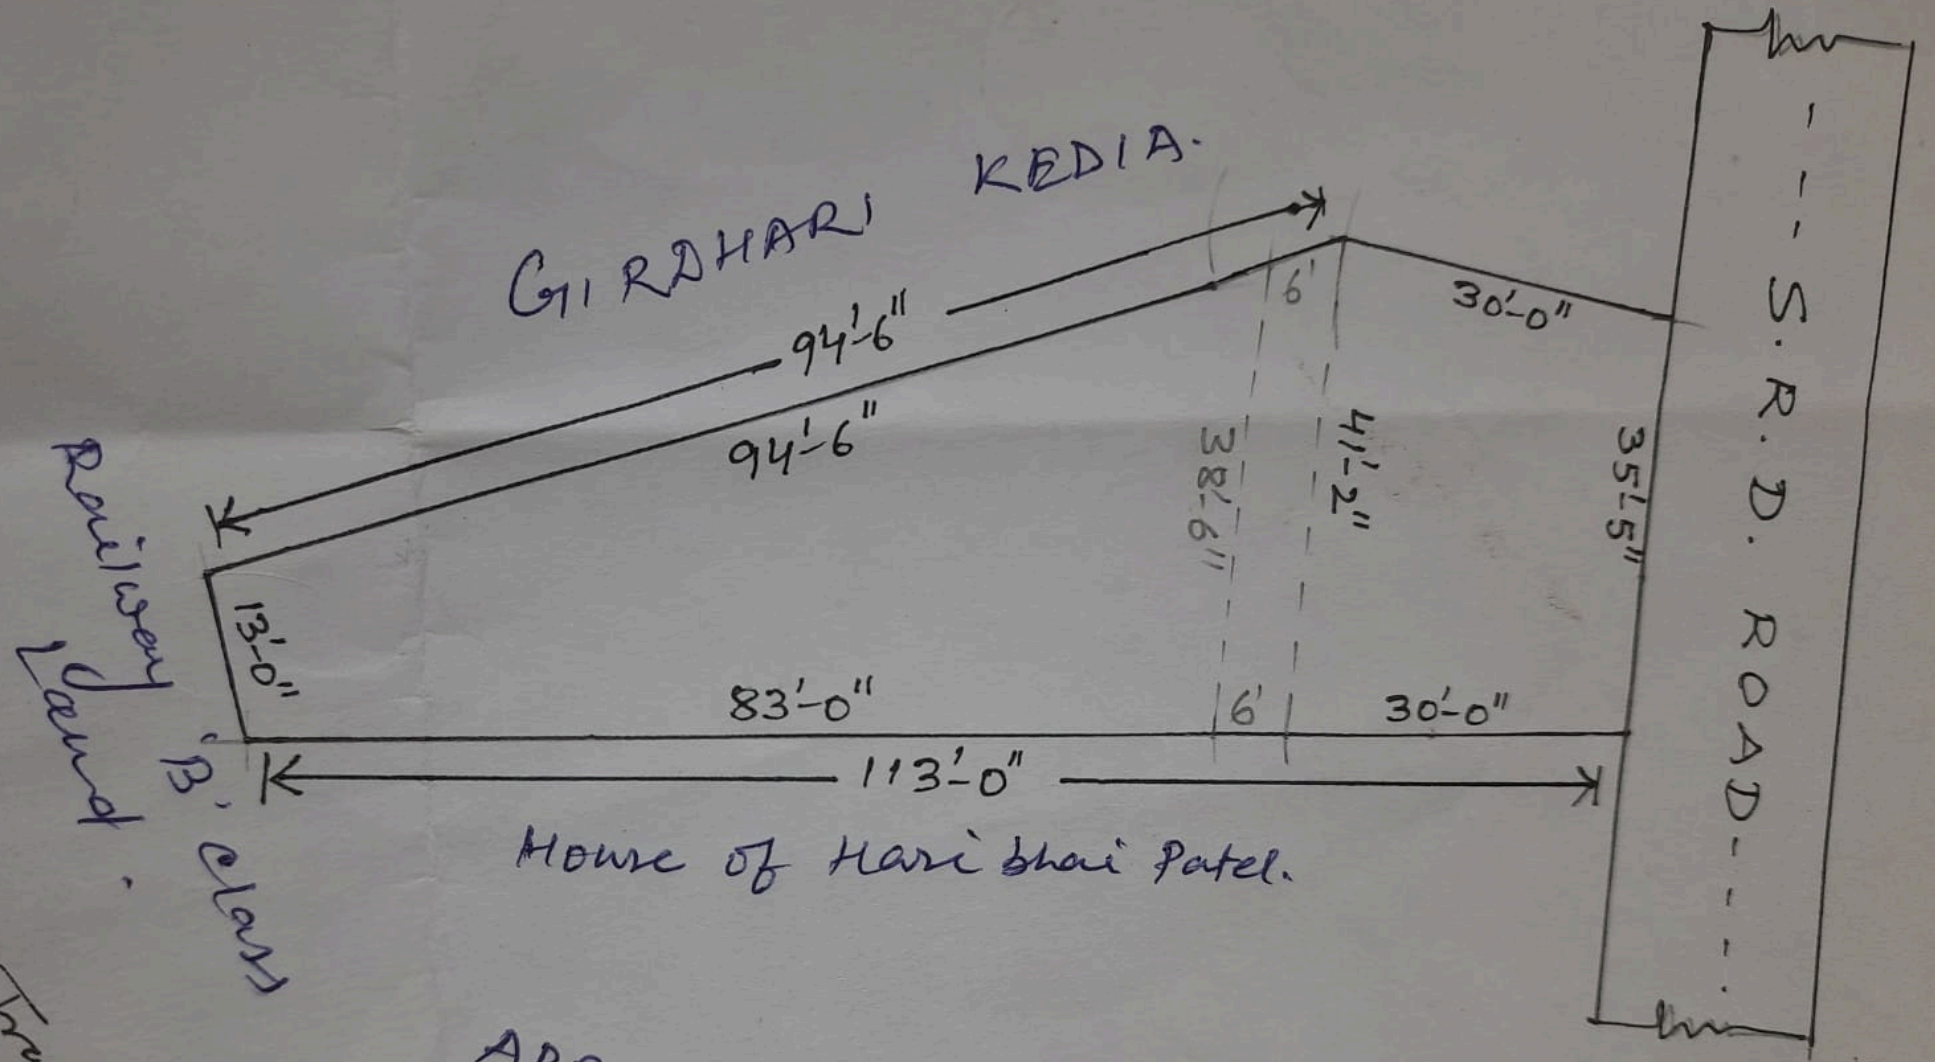 GIRDHARI KEDIA.
94'-6"
94'-6"
6'
30'-0"
38'-6"
41'-2"
35'-5"
---S.R.D. ROAD---.
13'-0"
83'-0"
6'
30'-0"
113'-0"
House of Haribhai Patel.
Railway 'B' class
Land.